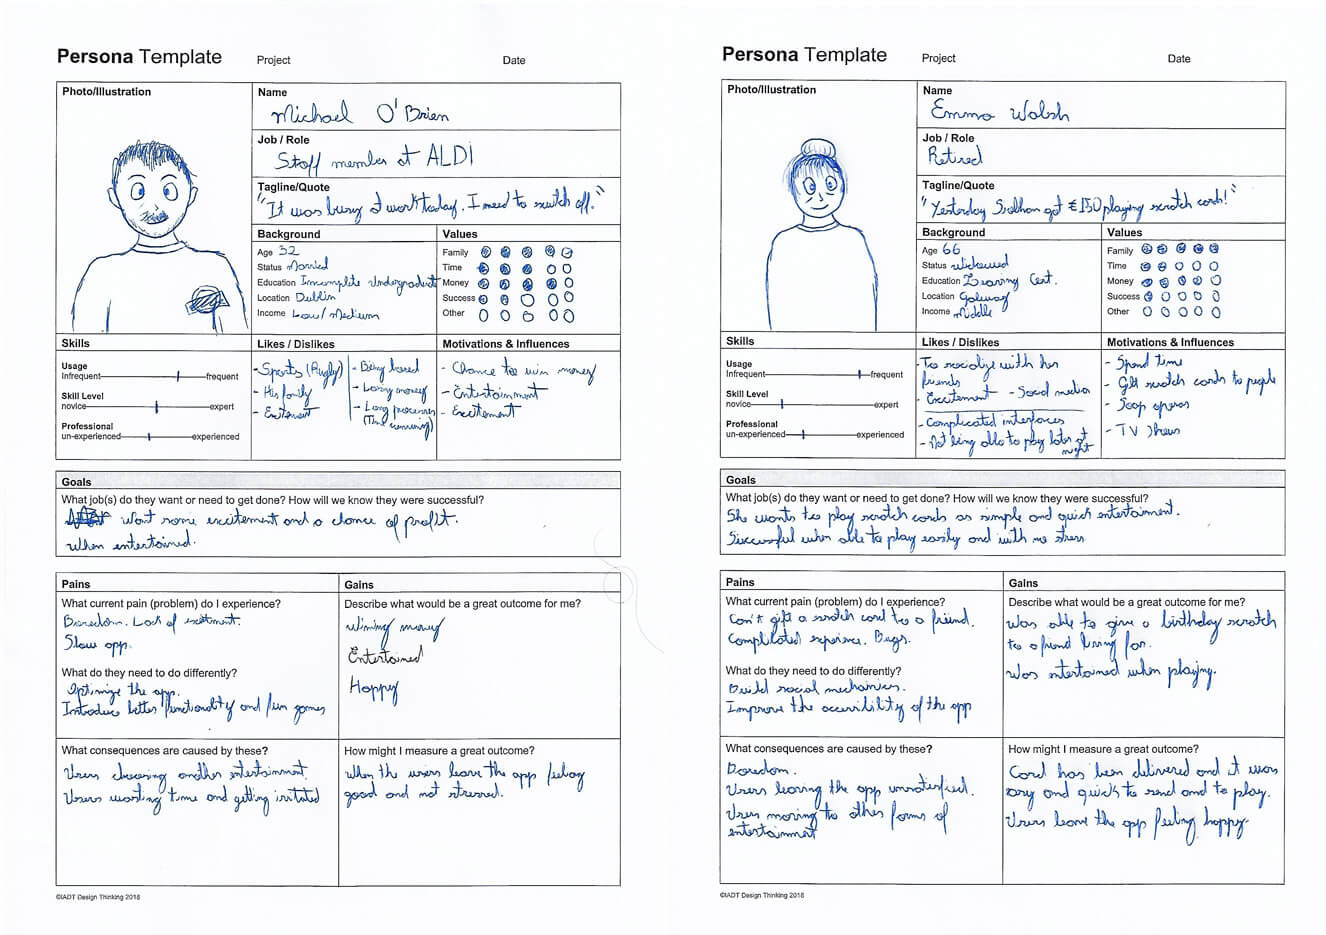 Persona Template Project Date
Photo/Illustration
Name
Michael O'Brien
Job / Role
Staff member at ALDI
Tagline/Quote
"It was busy at work today. I need to switch off."
Background
Age 32
Status Married
Education Incomplete Undergraduate
Location Dublin
Income Low/Medium
Values
Family
Time
Money
Success
Other
Skills
Usage
Infrequent frequent
Skill Level
novice expert
Professional
un-experienced experienced
Likes / Dislikes
- Sports (Rugby)
- His family
- Excitement
- Being bored
- Losing money
- Long processes
(Time consuming)
Motivations & Influences
- Chance to win money
- Entertainment
- Excitement
Goals
What job(s) do they want or need to get done? How will we know they were successful?
Want some excitement and a chance of profit.
When entertained.
Pains
What current pain (problem) do I experience?
Boredom. Lack of excitment.
Slow app.
What do they need to do differently?
Optimize the app.
Introduce better functionality and fun games
Gains
Describe what would be a great outcome for me?
Winning money
Entertained
Happy
What consequences are caused by these?
Users choosing another entertainment.
Users wasting time and getting irritated
How might I measure a great outcome?
When the users leave the app feeling
good and not stressed.
©IADT Design Thinking 2018
Persona Template Project Date
Photo/Illustration
Name
Emma Walsh
Job / Role
Retired
Tagline/Quote
"Yesterday Siobhan got €150 playing scratch cards!"
Background
Age 66
Status widowed
Education Leaving Cert.
Location Galway
Income Middle
Values
Family
Time
Money
Success
Other
Skills
Usage
Infrequent frequent
Skill Level
novice expert
Professional
un-experienced experienced
Likes / Dislikes
- To socialize with her
friends
- Excitement - Social media
- Complicated interfaces
- Not being able to play later at
night
Motivations & Influences
- Spend time
- Gift scratch cards to people
- Soap operas
- TV Shows
Goals
What job(s) do they want or need to get done? How will we know they were successful?
She wants to play scratch cards as simple and quick entertainment.
Successful when able to play easily and with no stress
Pains
What current pain (problem) do I experience?
Can't gift a scratch card to a friend.
Complicated experience. Bugs.
What do they need to do differently?
Build social mechanics.
Improve the accessibility of the app
Gains
Describe what would be a great outcome for me?
Was able to give a birthday scratch
to a friend living far.
Was entertained when playing.
What consequences are caused by these?
Boredom.
Users leaving the app unsatisfied.
Users moving to other forms of
entertainment
How might I measure a great outcome?
Card has been delivered and it was
easy and quick to send and to play.
Users leave the app feeling happy.
©IADT Design Thinking 2018